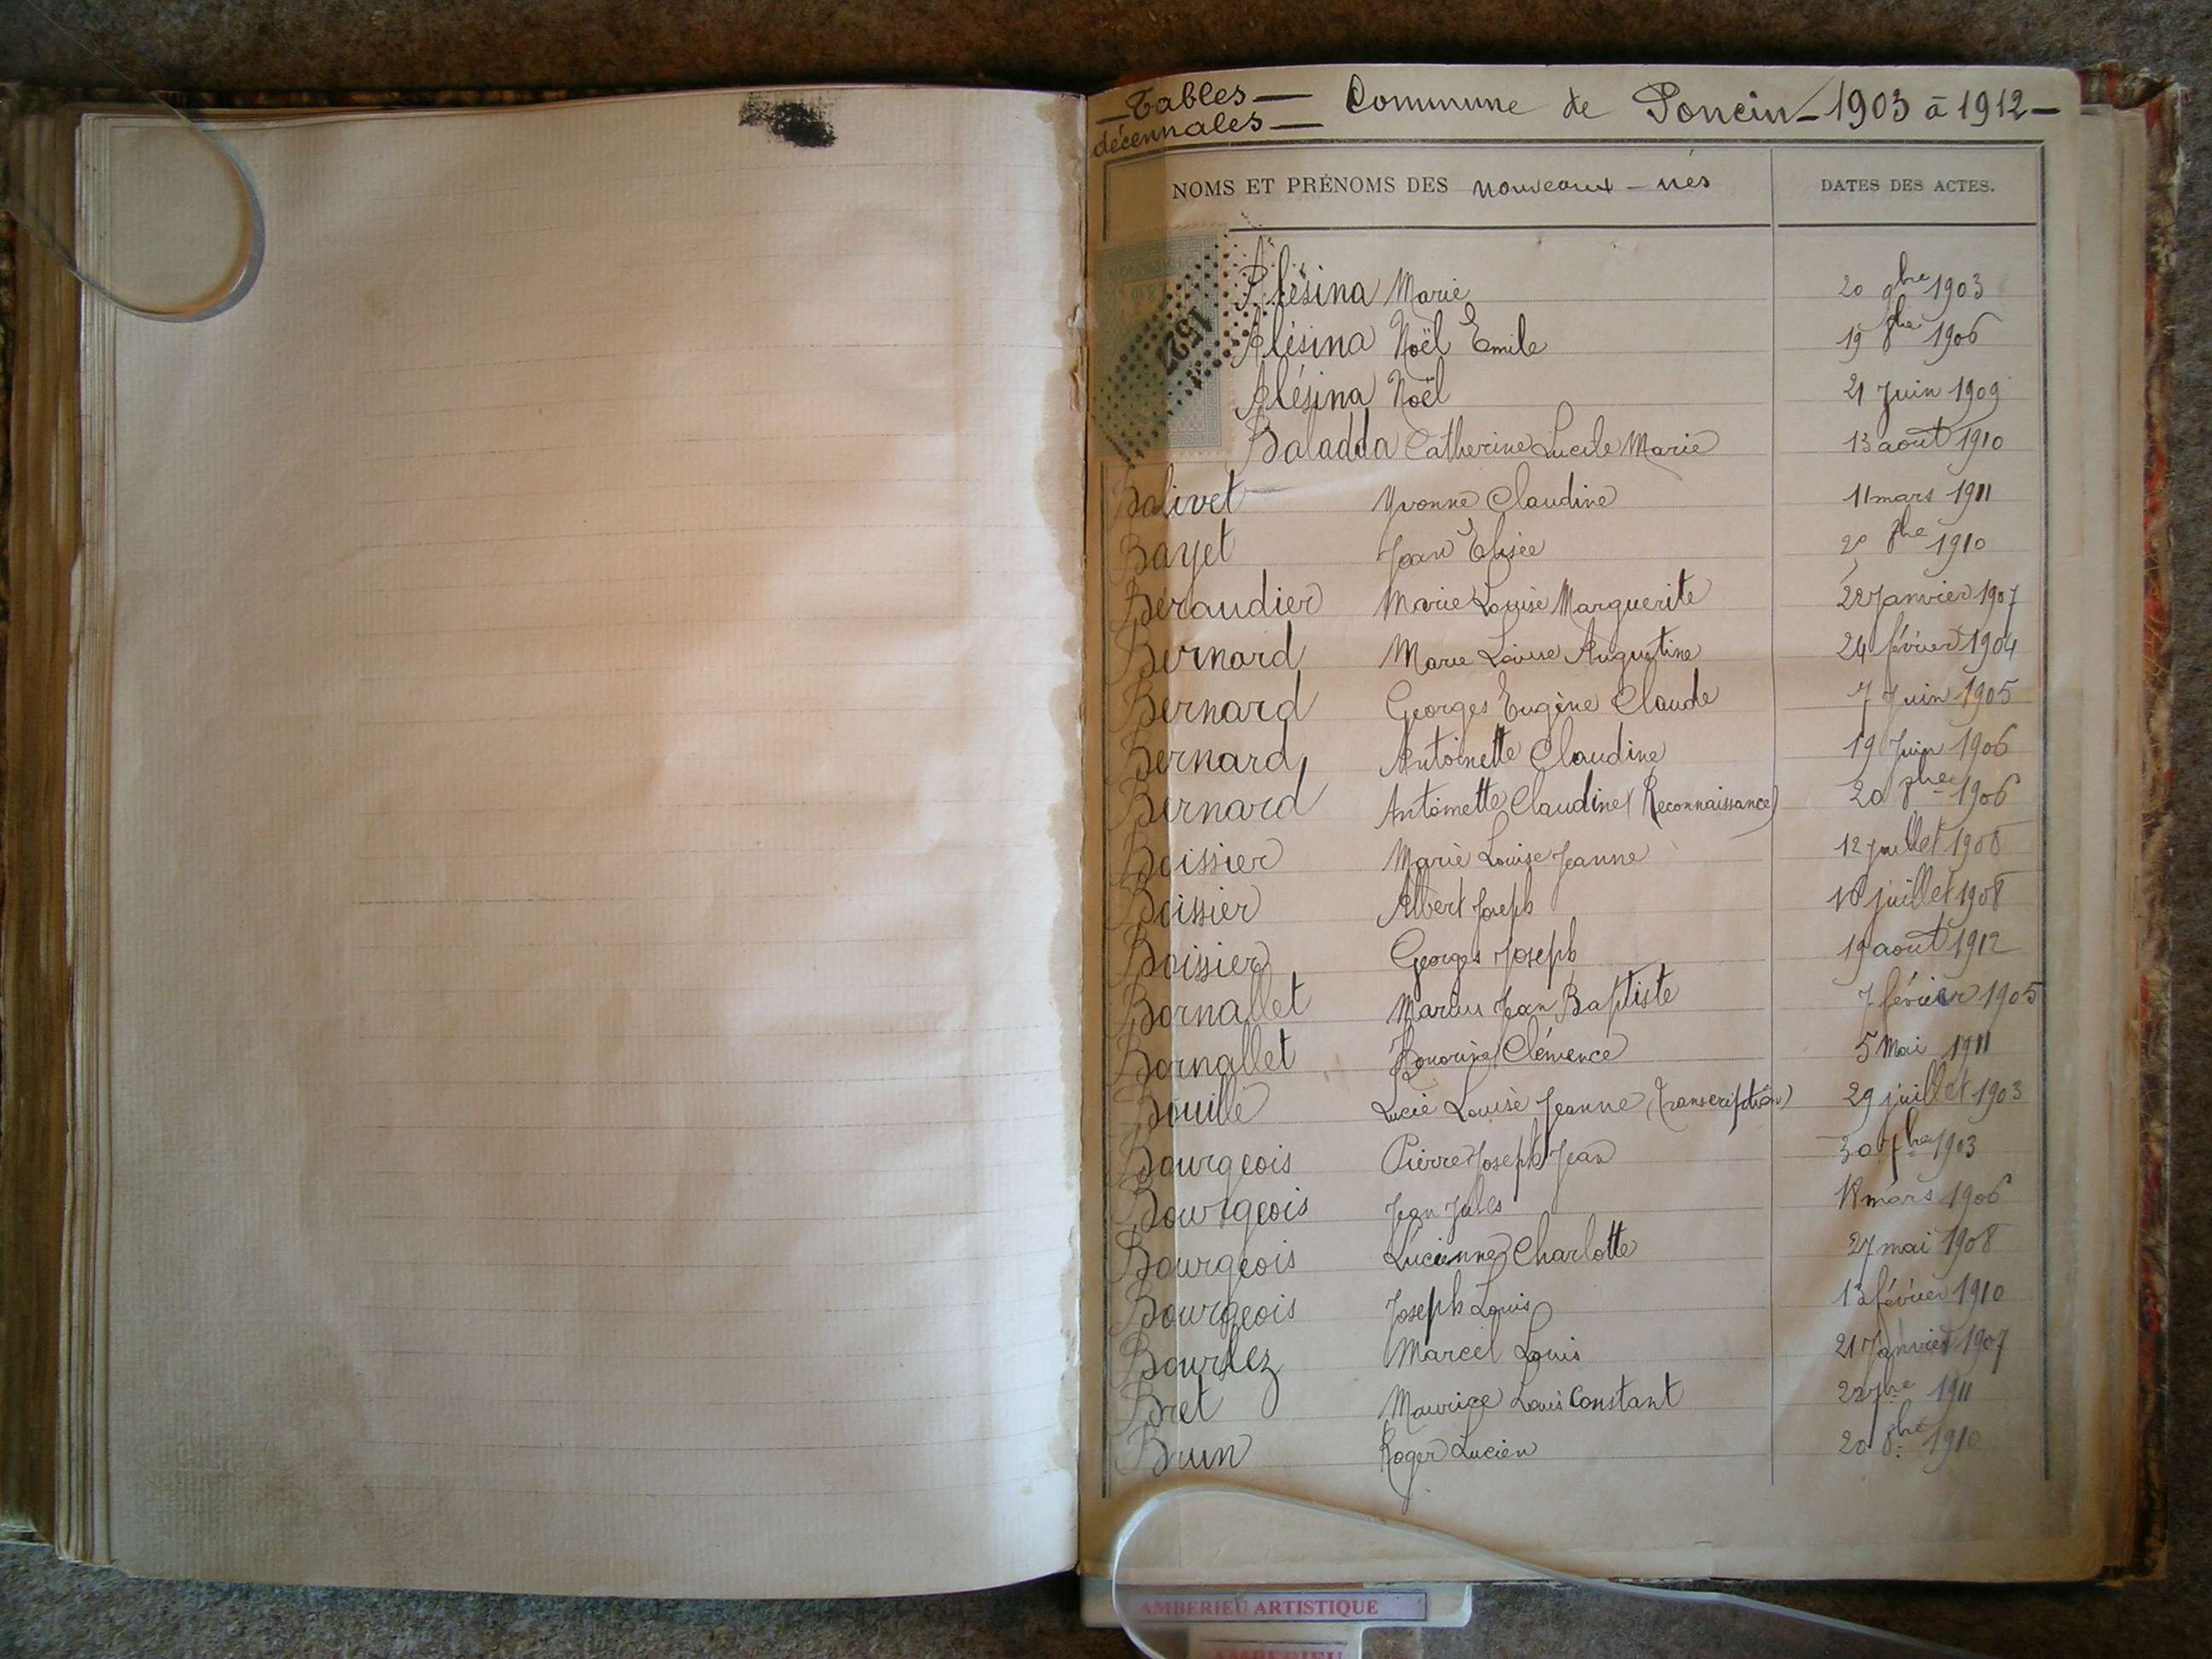 Tables
décennales
Commune de Poncin - 1903 à 1912 -
NOMS ET PRÉNOMS DES nouveaux-nés DATES DES ACTES.
1527
Alésina Marie 20 9bre 1903
Alésina Noël Emile 19 8bre 1906
Alésina Noël 21 Juin 1909
Baladda Catherine Lucile Marie 13 août 1910
Balivet Yvonne Claudine 11 mars 1911
Bayet Jean Elisée 8bre 1910
Béraudier Marie Louise Marguerite 22 Janvier 1907
Bernard Marie Louise Augustine 24 février 1904
Bernard Georges Eugène Claude 7 Juin 1905
Bernard Antoinette Claudine 19 Juin 1906
Bernard Antoinette Claudine (Reconnaissance) 20 8bre 1906
Boissier Marie Louise Jeanne 12 juillet 1908
Boissier Albert Joseph 18 juillet 1908
Boissier Georges Joseph 19 août 1912
Bornallet Marius Jean Baptiste 7 février 1905
Bornallet Honorine Clémence 5 Mai 1911
Bouillé Lucie Louise Jeanne (Transcription) 29 juillet 1903
Bourgeois Pierre Joseph Jean 30 7bre 1903
Bourgeois Jean Jules 18 mars 1906
Bourgeois Lucienne Charlotte 27 mai 1908
Bourgeois Joseph Louis février 1910
Bourlez Marcel Louis 21 Janvier 1907
Bret Maurice Louis Constant 22 7bre 1911
Brun Roger Lucien 20 8bre 1910
AMBERIEU ARTISTIQUE
AMBERIEU